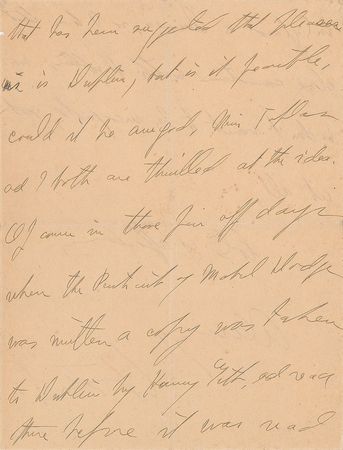 that has been suggested that pleases
us is Dublin, but is it possible,
could it be arranged, Miss Toklas
and I both are thrilled at the idea.
Of course in those far off days
when the Portrait of Mabel Dodge
was written a copy was taken
to Dublin by Harry and read
there before it was read